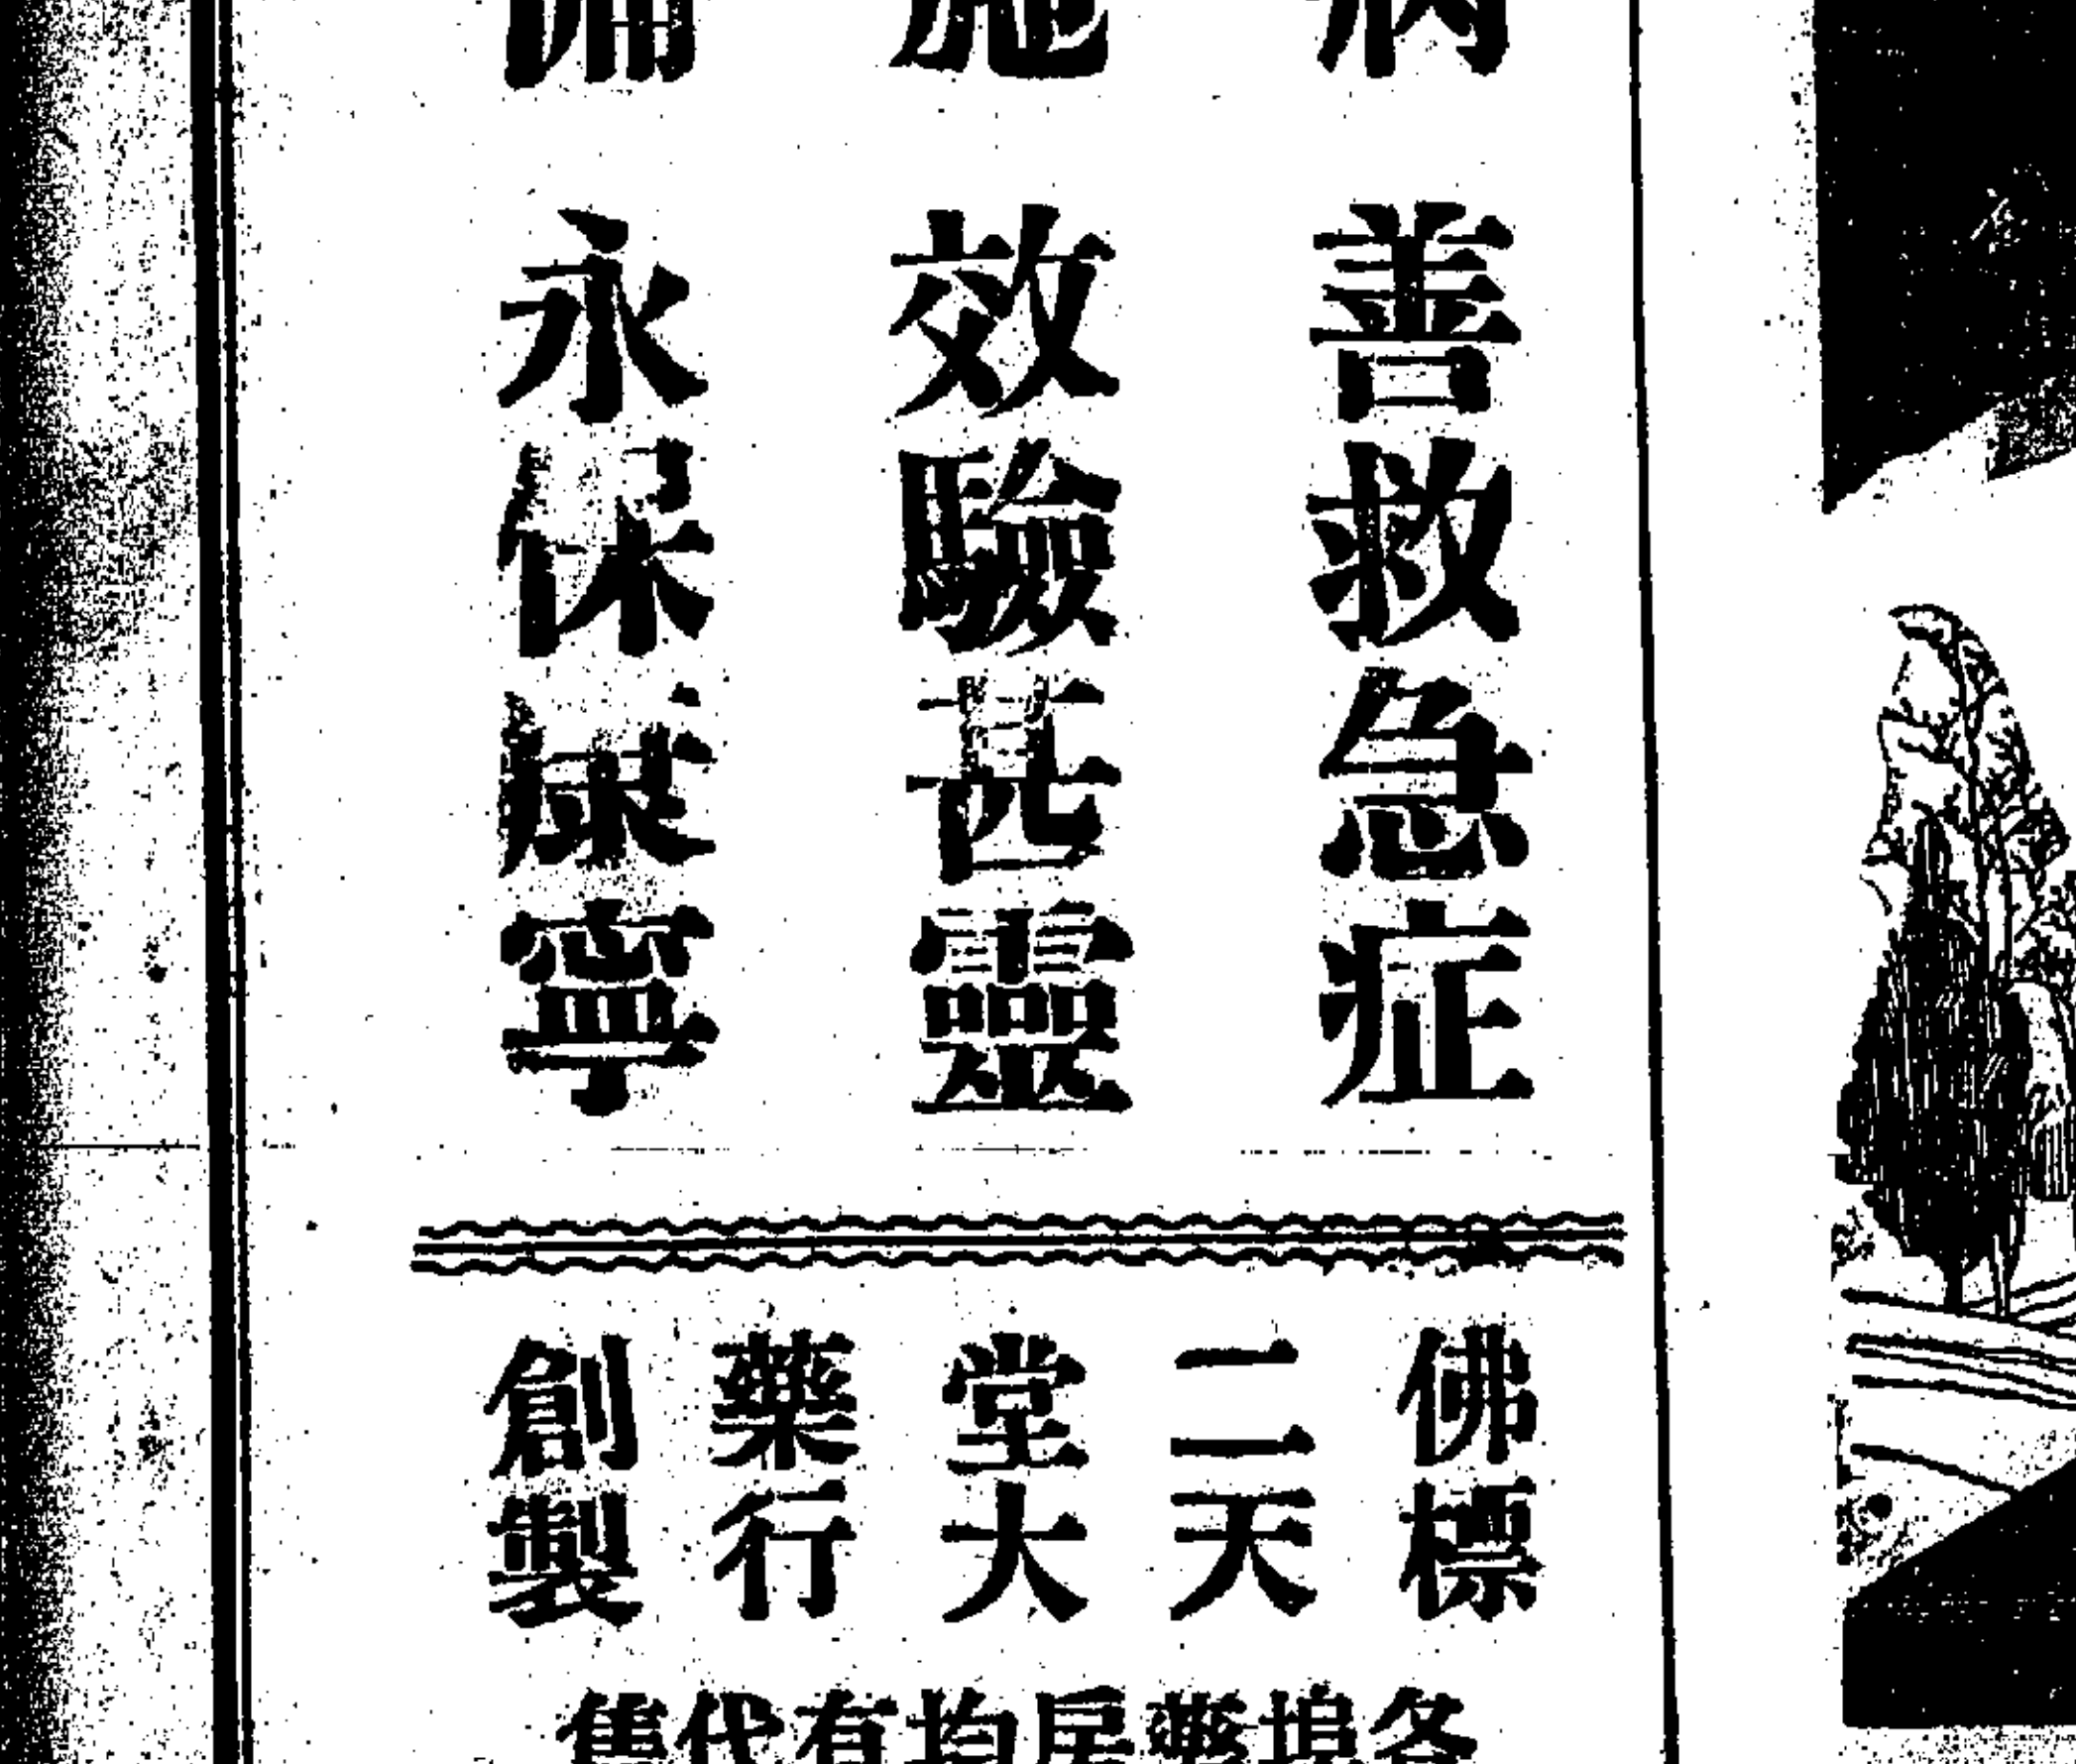 善救急症
效驗甚靈
永保康寧
佛標
二天
堂大
藥行
創製
各埠藥房均有代售